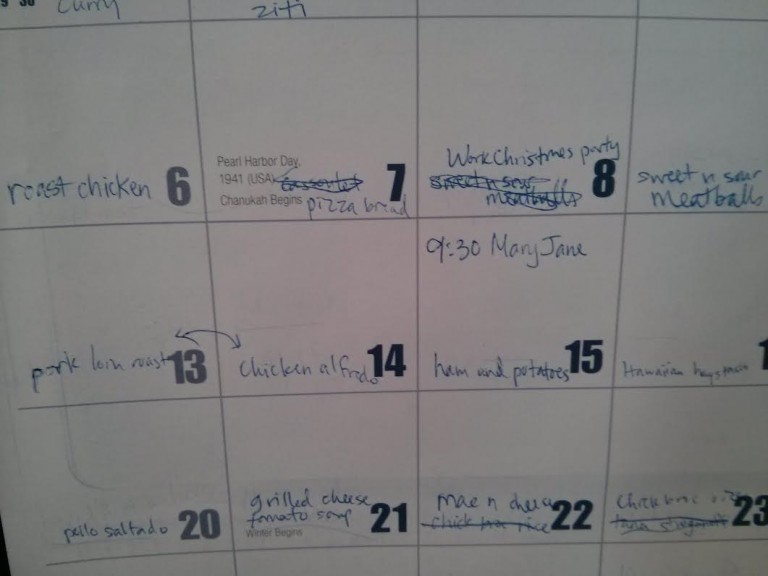 30
curry
ziti
roast chicken 6
Pearl Harbor Day,
1941 (USA)
Chanukah Begins
pizza bread
7
Work Christmas party
sweet n sour
meatballs
8
sweet n sour
meatballs
pork loin roast 13
chicken alfredo 14
9:30 Mary Jane
ham and potatoes 15
Hawaiian haystacks
pollo saltado 20
grilled cheese
tomato soup
Winter Begins
21
mac n cheese
22
23